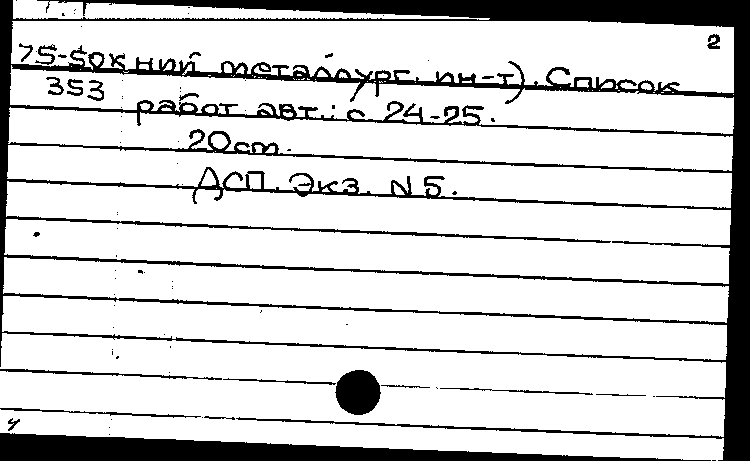 2
75-50к ний металлург. ин-т). Список
353 работ авт.: с 24-25.
20см.
ДСП. Экз. N 5.